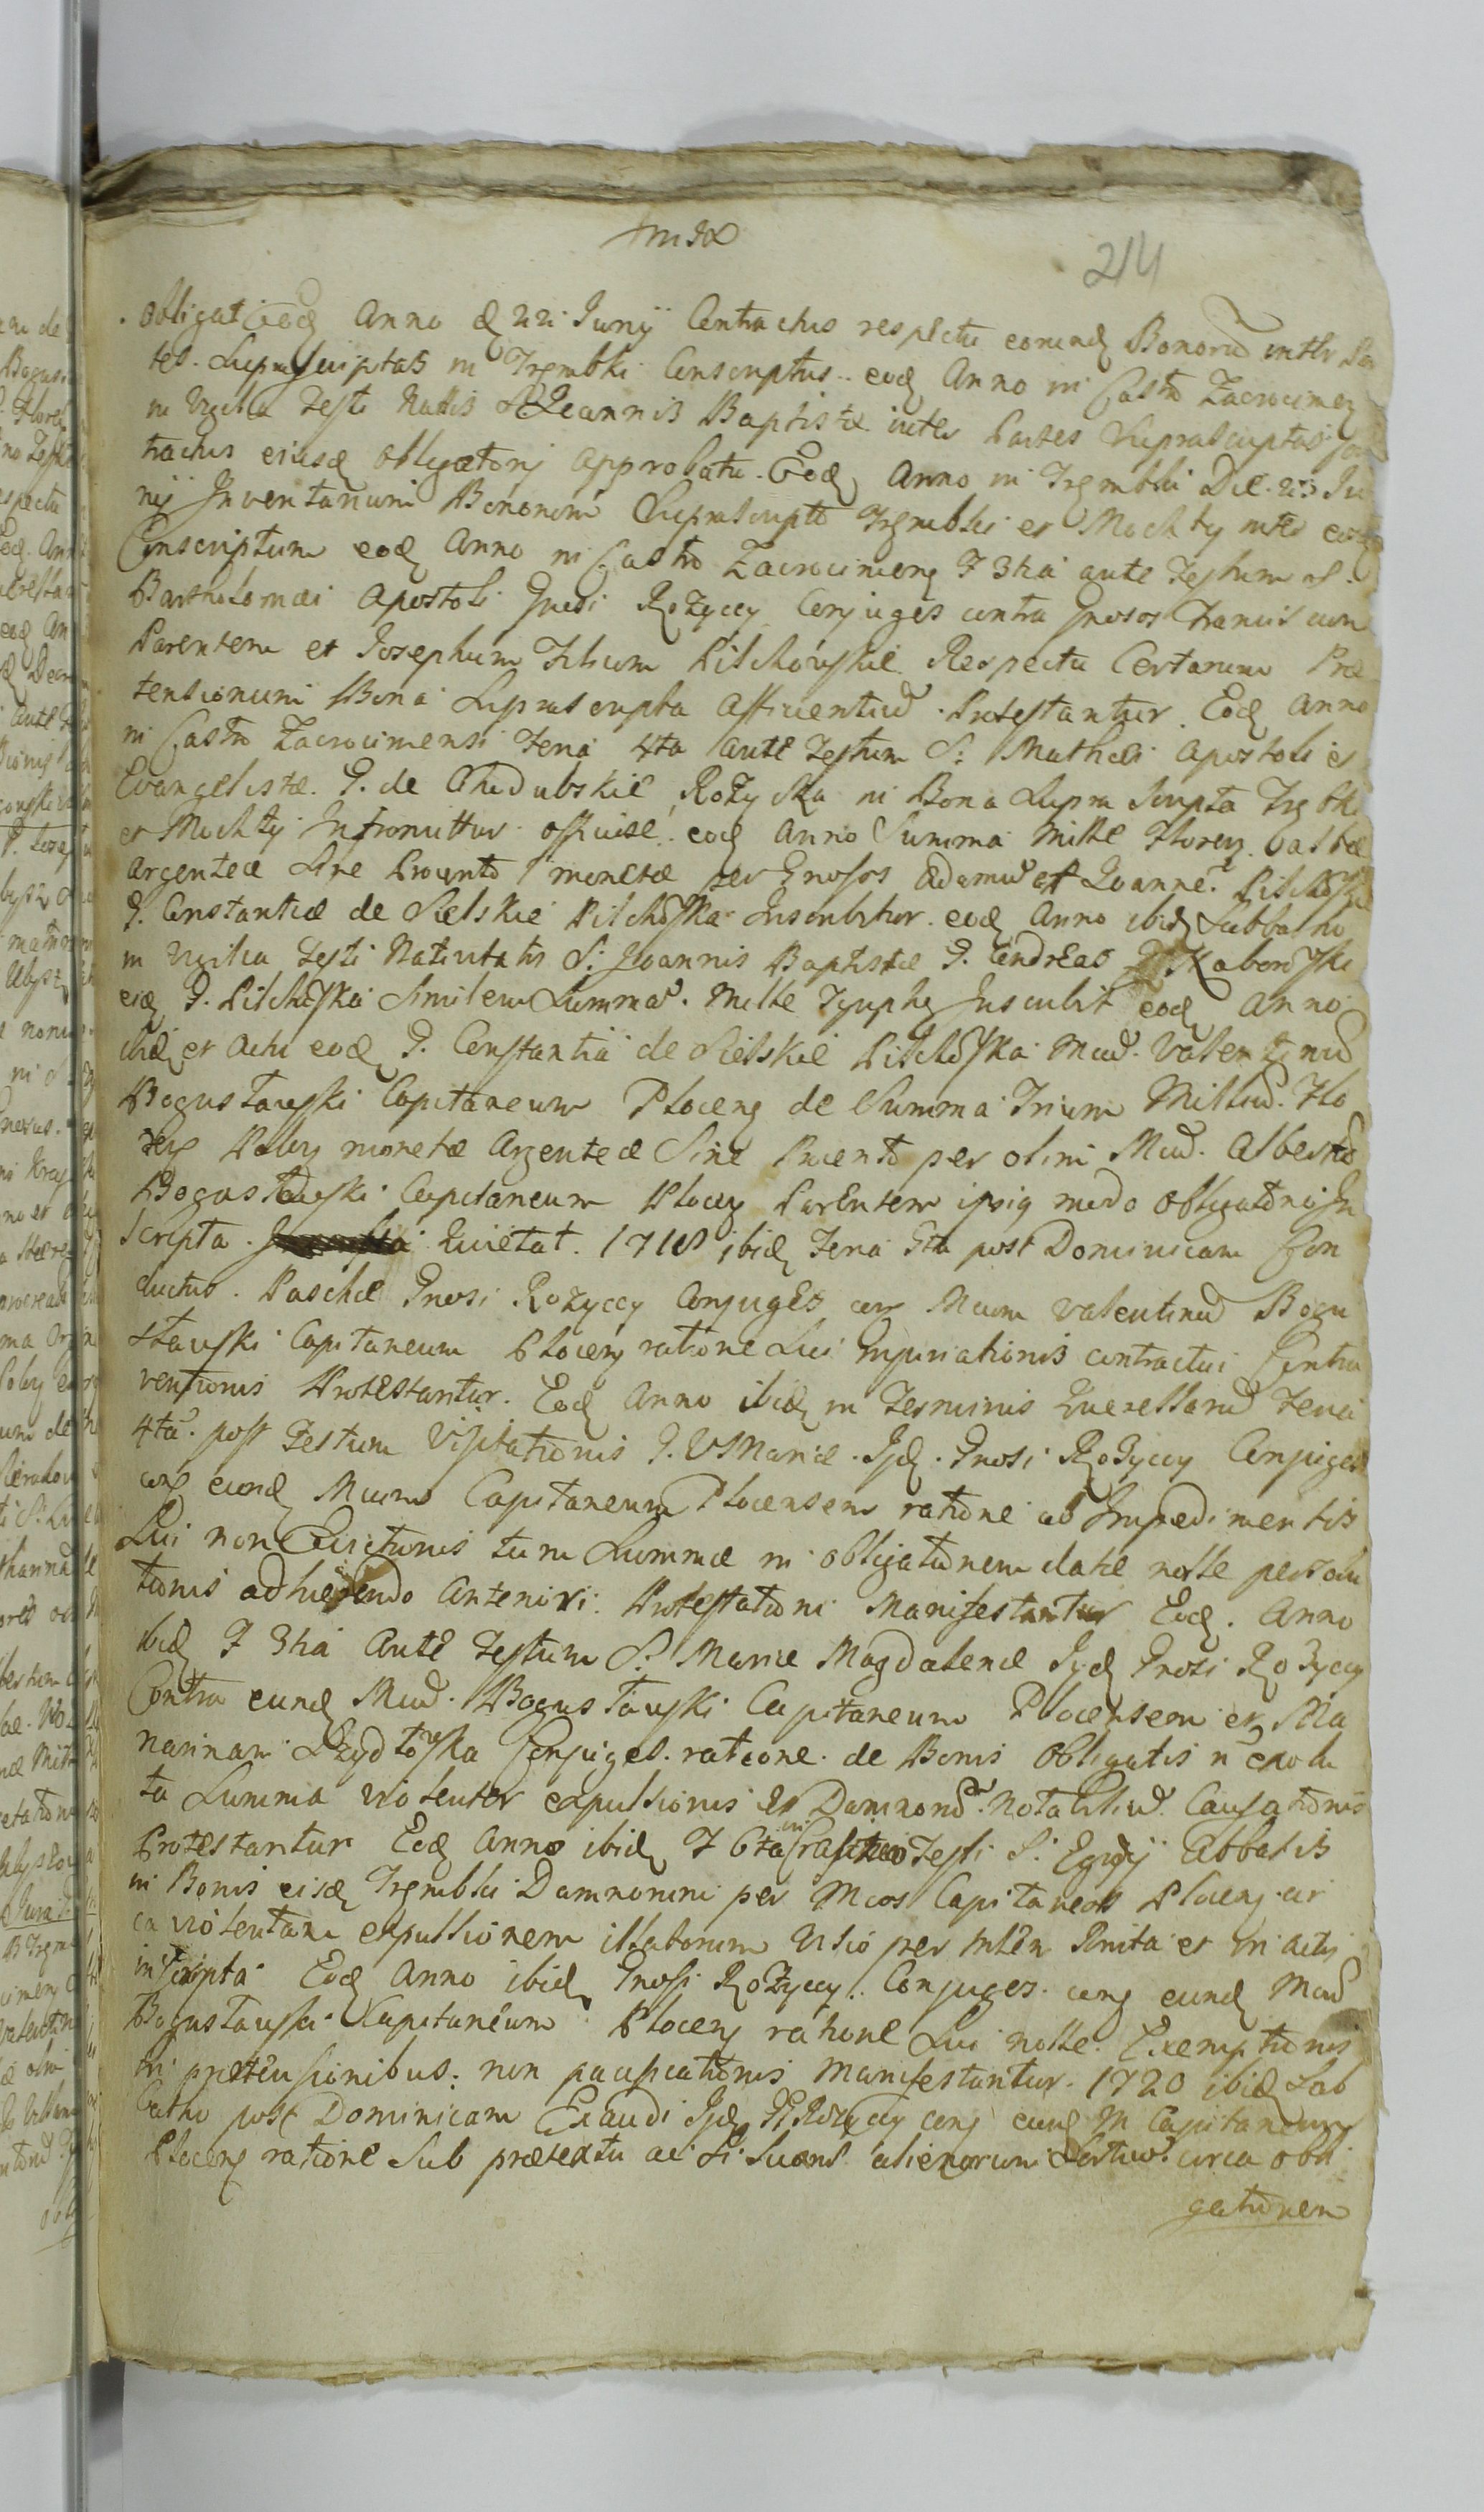 214
obligat eod Anno d 22 Junij Contractus respectu eorund Bonoru inter Par
tes Suprascriptas in Trembki Conscriptus eod Anno in Castro Zacrocimen
in Vigilia Festi Natlis S Joannis Baptistæ inter Partes Suprascriptas
tractus eiusd obligatorij approbatu. Eod Anno in Trembki Die 23 Ju
nij Inventarium Bonorum Suprascripto Trembki et Mochty inter eosd
Conscriptum eod Anno in Castro Zacrocimen F 3tia ante Festum S.
Bartholomæi Apostoli Gnosi Rozyccy Conjuges contra Gnosos Franciscum
Parentem et Josephum Filium Pilchowskie Respectu Certarum Præ
tensionum Bona Suprascripta afficientiu Protestantur Eod Anno
in Castro Zacrocimensi Feria 4ta ante Festum S: Mathæi Apostoli et
Evangelistæ G. de Chadubskie Rozycka in Bona Supra Scripta Trębki
et Mochty Intromittur officiose eod Anno Summa Mille Floren
Argenteæ Sine Provento monetæ per Gnosos Adamu et Joanne Pilchoski
G. Constantiæ de Sielskie Pilchoska Inscribitur eod Anno ibid Sabbatho
in Vigilia Festi Nativitatis S: Joannis Baptistæ G. Andreas Skaboroski
eid G. Pilchoska Similem Summa Mille Tynph Inscribit eod Anno
ibid et actu eod G. Constantia de Sielskie Pilchoska Mcu Valentinu
Bogustawski Capitaneum Plocen de Summa Trium Milliu Flo
ren Polon monetæ Argenteæ Sine Provento per olim Mcu Albertu
Bogustawski Capitaneum Plocen Parentem ipsig modo obligatorio In
scripta Quietat. 1718 ibid Feria 5ta post Dominicam Con
ductus Paschæ Gnosi Rozyccy Conjuges con Mcum Valentinu Bogu
stawski Capitaneum Plocen ratione Sui Injuriationis contractui Contra
ventionis Protestantur. Eod Anno ibid in Terminis Querellaru Feria
4ta post Festum Visitationis B. V Mariæ Ijd Gnosi Rozyccy Conjuges
con eund Mcum Capitaneum Plocensem ratione ab Impedimentis
Sui non Evictionis tum Summæ in obligationem datæ nolle persolu
tionis adhærendo anteriori Protestationi Manifestantur Eod. Anno
ibid F 3tia ante Festum S. Mariæ Magdalenæ Ijd Gnosi Rozyccy
Contra eund Mcu Bogustawski Capitaneum Plocensem et Ma
riannam Szydtowska Conjuges ratione de Bonis obligatis n exolu
ta Summa violenter expulsionis et Damnoru Notabiliu Causationis
Protestantur Eod Anno ibid F 6ta in Crastino Festi S. Egidij Abbatis
in Bonis eisd Trembki Damnorum per Mcos Capitaneos Plocen cir
ca violentam expulsionem illatorum Visio per Minlem Ponita et in acta
inscripta Eod Anno ibid Gnosi Rozyccy Conjuges con eund Mcu
Bogustawski Capitaneum Plocen ratione Sui nolle Exemptionis
in prætensionibus non pacificationis Manifestantur. 1720 ibid Sab
batho post Dominicam Exaudi Ijd GG Rozyccy con eund M Capitaneum
Plocen ratione Sub prætextu ac Si Suoru alienorum circa obli
gationem